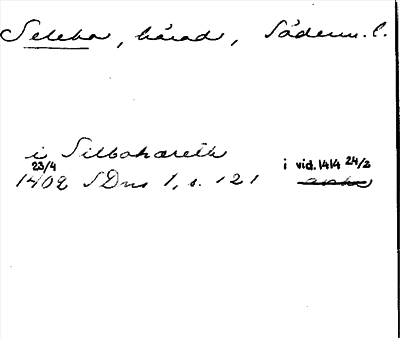 Selebo, härad, Söderm. l.
i Silbohareth
23/4 i vid. 1414 24/2
1402 SDns 1, s. 121